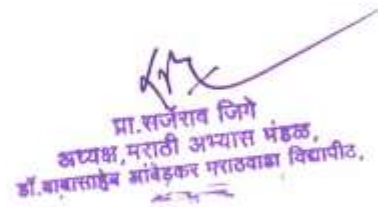 प्रा.सर्जेराव जिगे
अध्यक्ष,मराठी अभ्यास मंडळ,
डॉ.बाबासाहेब आंबेडकर मराठवाडा विद्यापीठ,